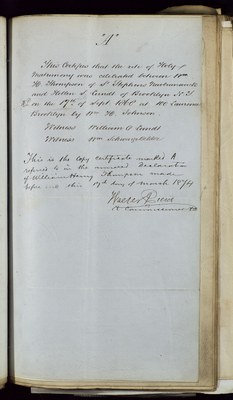 "A"
This Certifies that the rite of Holy
Matrimony was celebrated between Wm
H. Thompson of St Stephens Newbrunswick
and Hellen S. Cundl of Brooklyn N. Y.
on the 17th of Sept 1868 at
Brooklyn by Wm H. Johnson.
Witness William A Cundl
Witness Wm
This is the Copy Certificate marked A
referred to in the annexed Declaration
of William Henry Thompson made
before me this 19th day of March 1874
A Commissioner &c